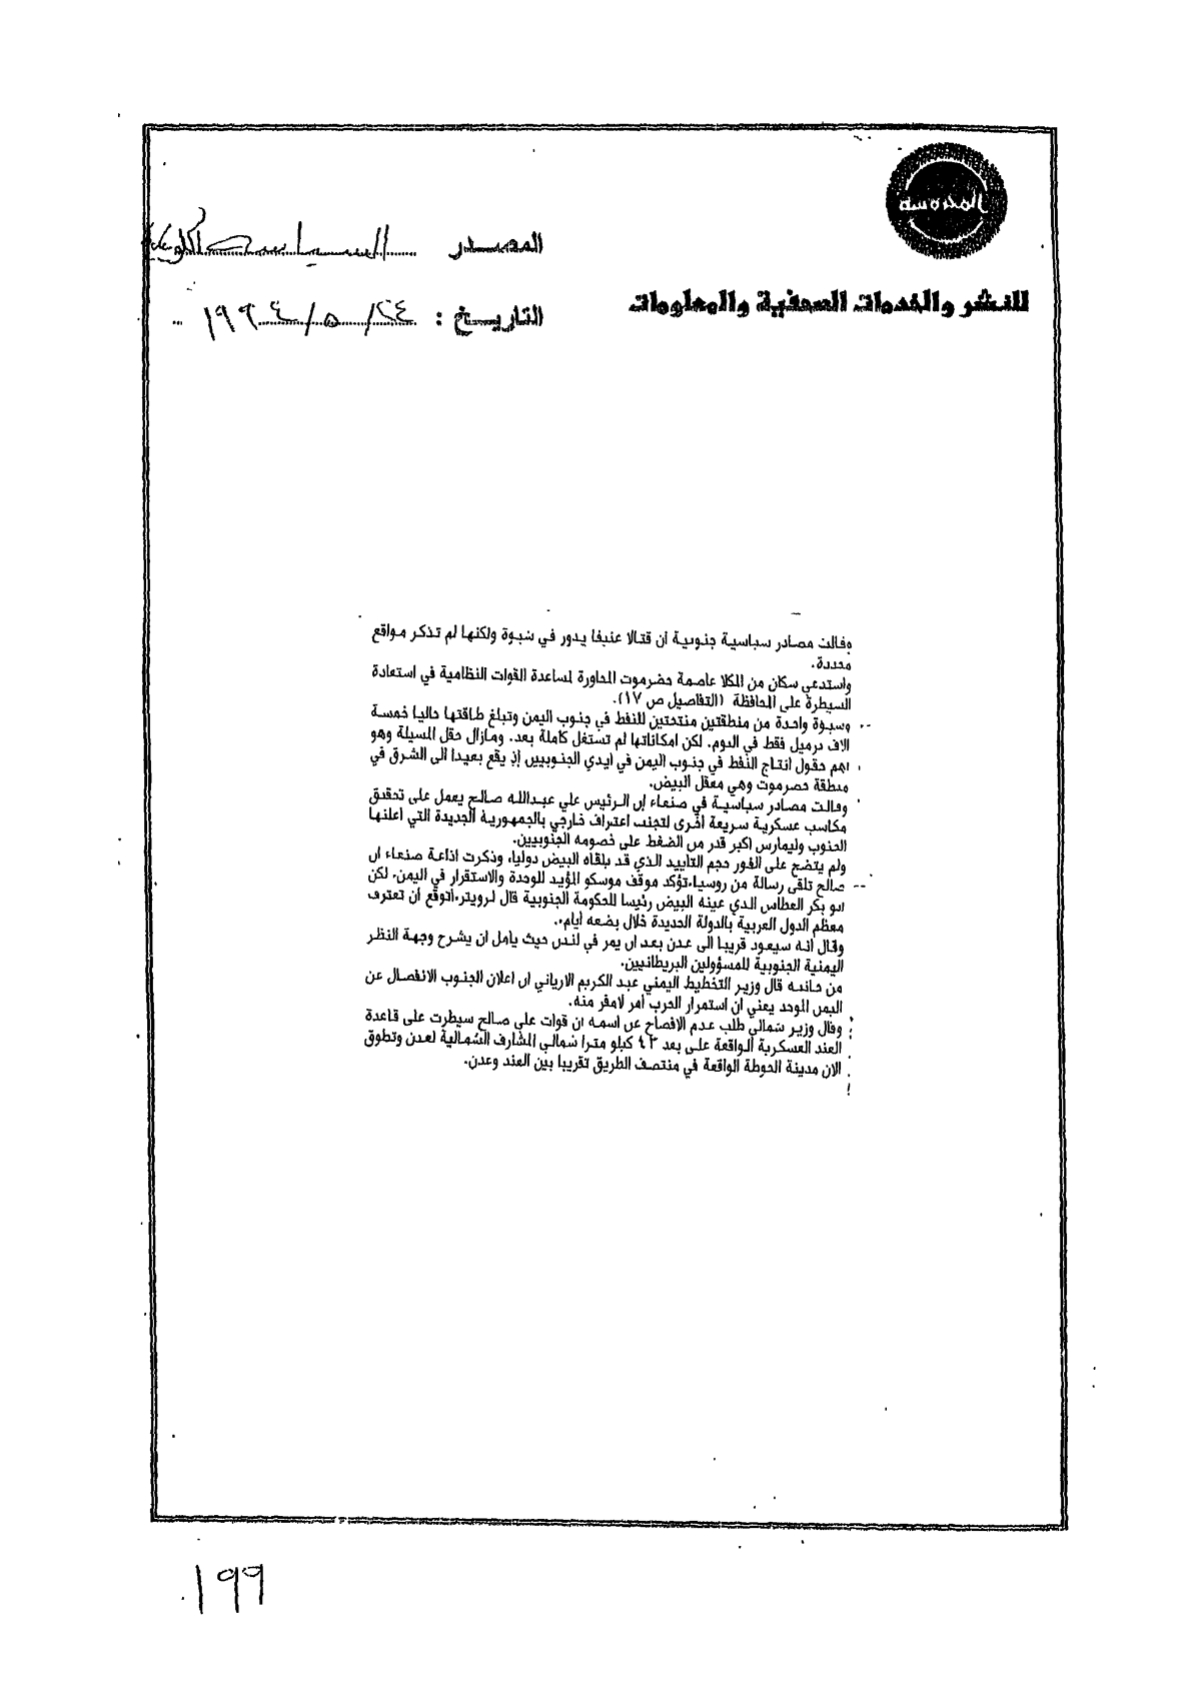 المصدر السياسة الكويتية
للنشر والخدمات الصحفية والمعلومات
التاريخ : ٢٤/٥/١٩٩٤
وقالت مصادر سياسية جنوبية ان قتالا عنيفا يدور في شبوة ولكنها لم تذكر مواقع
محددة.
واستدعي سكان من المكلا عاصمة حضرموت المجاورة لمساعدة القوات النظامية في استعادة
السيطرة على المحافظة (التفاصيل ص ١٧).
وشبوة واحدة من منطقتين منتجتين للنفط في جنوب اليمن وتبلغ طاقتها حاليا خمسة
الاف برميل فقط في اليوم. لكن امكاناتها لم تستغل كاملة بعد. ومازال حقل المسيلة وهو
اهم حقول انتاج النفط في جنوب اليمن في ايدي الجنوبيين إذ يقع بعيدا الى الشرق في
منطقة حضرموت وهي معقل البيض.
وقالت مصادر سياسية في صنعاء إن الرئيس علي عبدالله صالح يعمل على تحقيق
مكاسب عسكرية سريعة اخرى لتجنب اعتراف خارجي بالجمهورية الجديدة التي اعلنها
الجنوب وليمارس اكبر قدر من الضغط على خصومه الجنوبيين.
ولم يتضح على الفور حجم التاييد الذي قد يلقاه البيض دوليا، وذكرت اذاعة صنعاء ان
صالح تلقى رسالة من روسيا،تؤكد موقف موسكو المؤيد للوحدة والاستقرار في اليمن، لكن
ابو بكر العطاس الذي عينه البيض رئيسا للحكومة الجنوبية قال لرويتر،اتوقع ان تعترف
معظم الدول العربية بالدولة الجديدة خلال بضعه أيام،.
وقال انه سيعود قريبا الى عدن بعد ان يمر في لندن حيث يامل ان يشرح وجهة النظر
اليمنية الجنوبية للمسؤولين البريطانيين.
من جانبه قال وزير التخطيط اليمني عبد الكريم الارياني ان اعلان الجنوب الانفصال عن
اليمن الموحد يعني ان استمرار الحرب امر لامفر منه.
وقال وزير شمالي طلب عدم الافصاح عن اسمه ان قوات علي صالح سيطرت على قاعدة
العند العسكرية الواقعة على بعد ٤٣ كيلو مترا شمالي المشارف الشمالية لعدن وتطوق
الان مدينة الحوطة الواقعة في منتصف الطريق تقريبا بين العند وعدن.
١٩٩